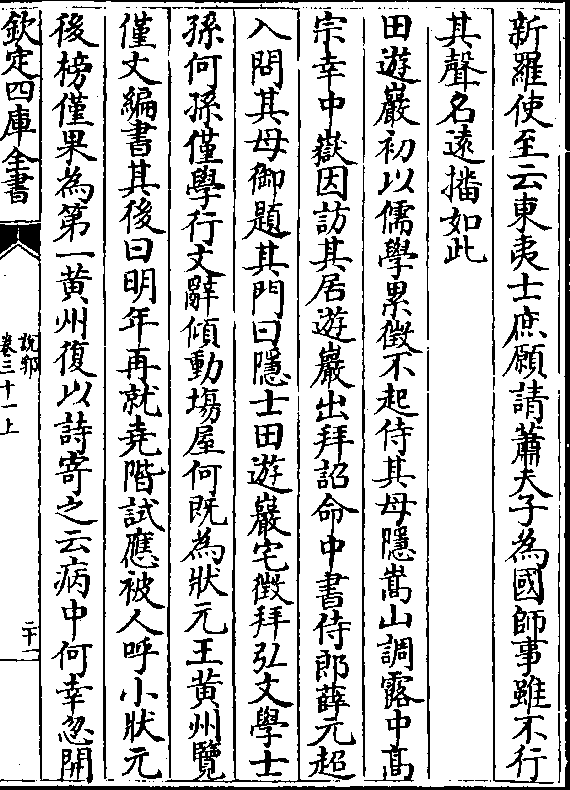 新羅使至云東夷士庶願請蕭夫子為國師事雖不行
其聲名遠播如此
田遊巖初以儒學累徵不起侍其母隱嵩山調露中高
宗幸中嶽因訪其居遊巖出拜詔命中書侍郎薛元超
入問其母御題其門曰隱士田遊巖宅徵拜弘文學士
孫何孫僅學行文辭傾動塲屋何既為狀元王黄州覽
僅文編書其後曰明年再就堯階試應被人呼小狀元
後榜僅果為第一黄州復以詩寄之云病中何幸忽開
欽定四庫全書
說郛
卷三十一上
二十一